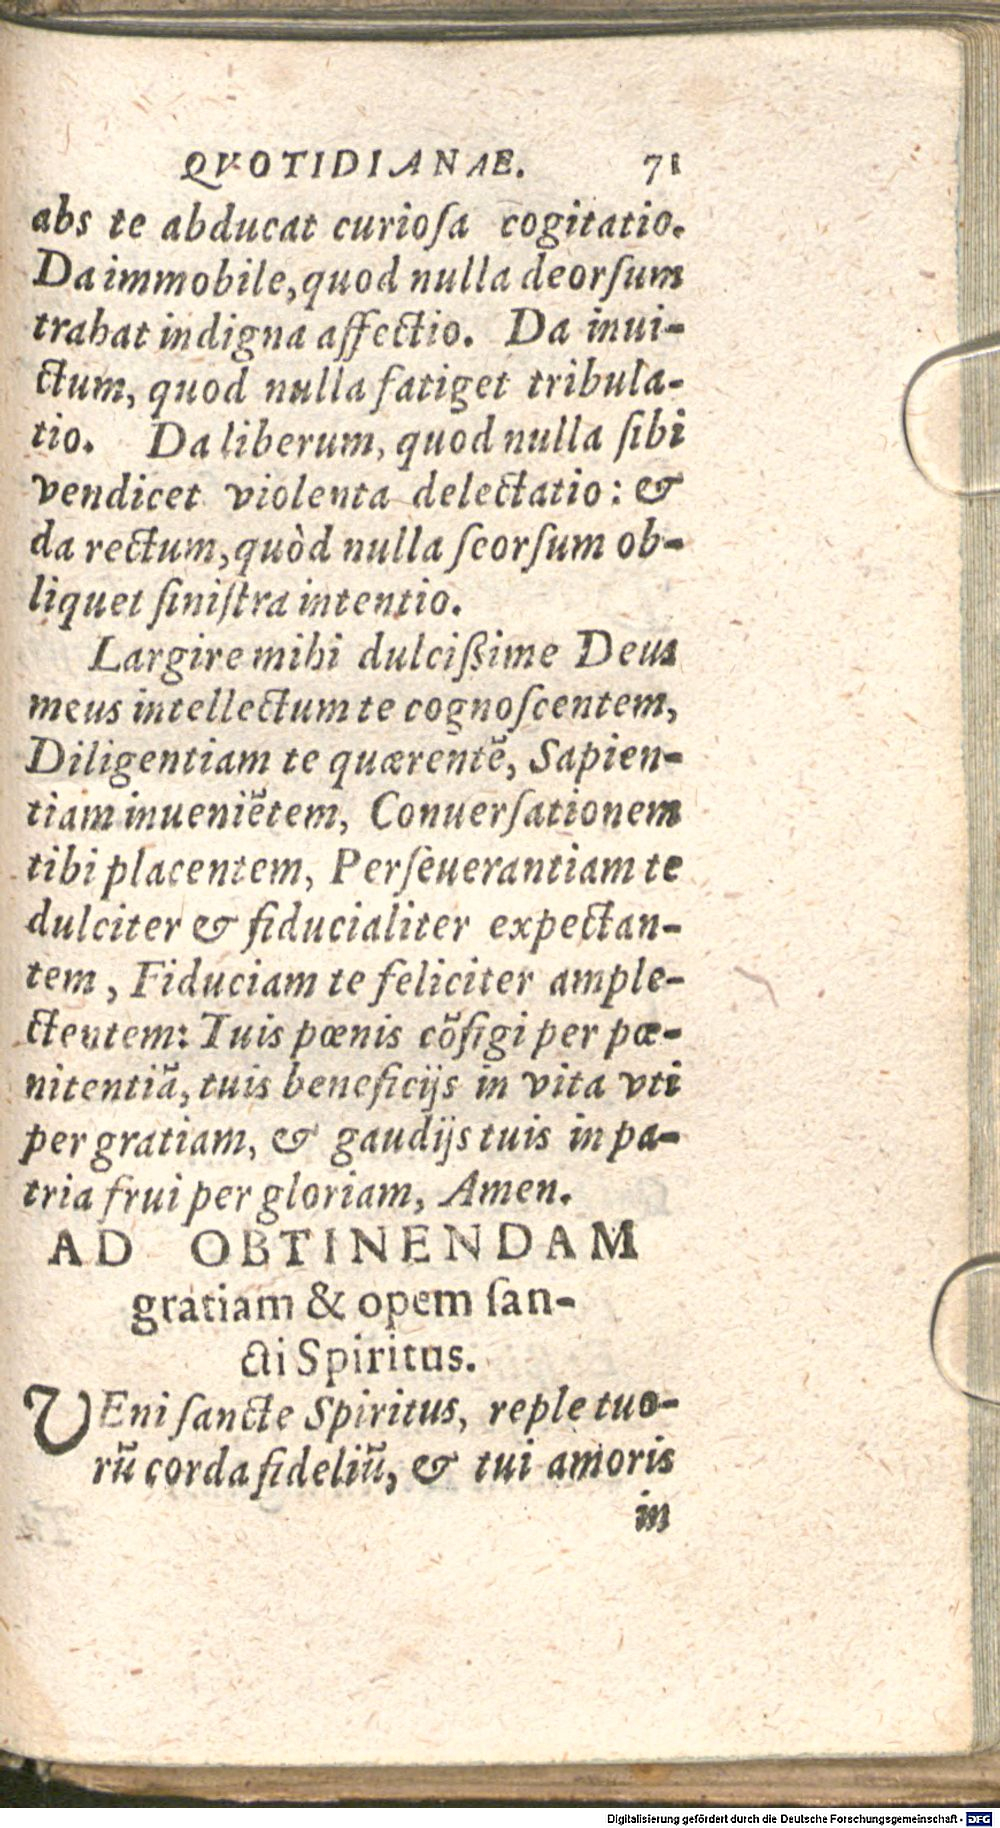 QVOTIDIANAE. 71
abs te abducat curioſa cogitatio.
Da immobile, quod nulla deorſum
trahat indigna affectio. Da inui-
ctum, quod nulla fatiget tribula-
tio. Da liberum, quod nulla ſibi
vendicet violenta delectatio: &
da rectum, quòd nulla ſeorſum ob-
liquet ſiniſtra intentio.
Largire mihi dulciſſime Deus
meus intellectum te cognoſcentem,
Diligentiam te quærentē, Sapien-
tiam inueniētem, Conuerſationem
tibi placentem, Perſeuerantiam te
dulciter & fiducialiter expectan-
tem, Fiduciam te feliciter ample-
ctentem: Tuis pœnis cōfigi per pœ-
nitentiā, tuis beneficijs in vita vti
per gratiam, & gaudijs tuis in pa-
tria frui per gloriam, Amen.
AD OBTINENDAM
gratiam & opem ſan-
cti Spiritus.
VEni ſancte Spiritus, reple tuo-
rū corda fideliū, & tui amoris
in
Digitalisierung gefördert durch die Deutsche Forschungsgemeinschaft - DFG